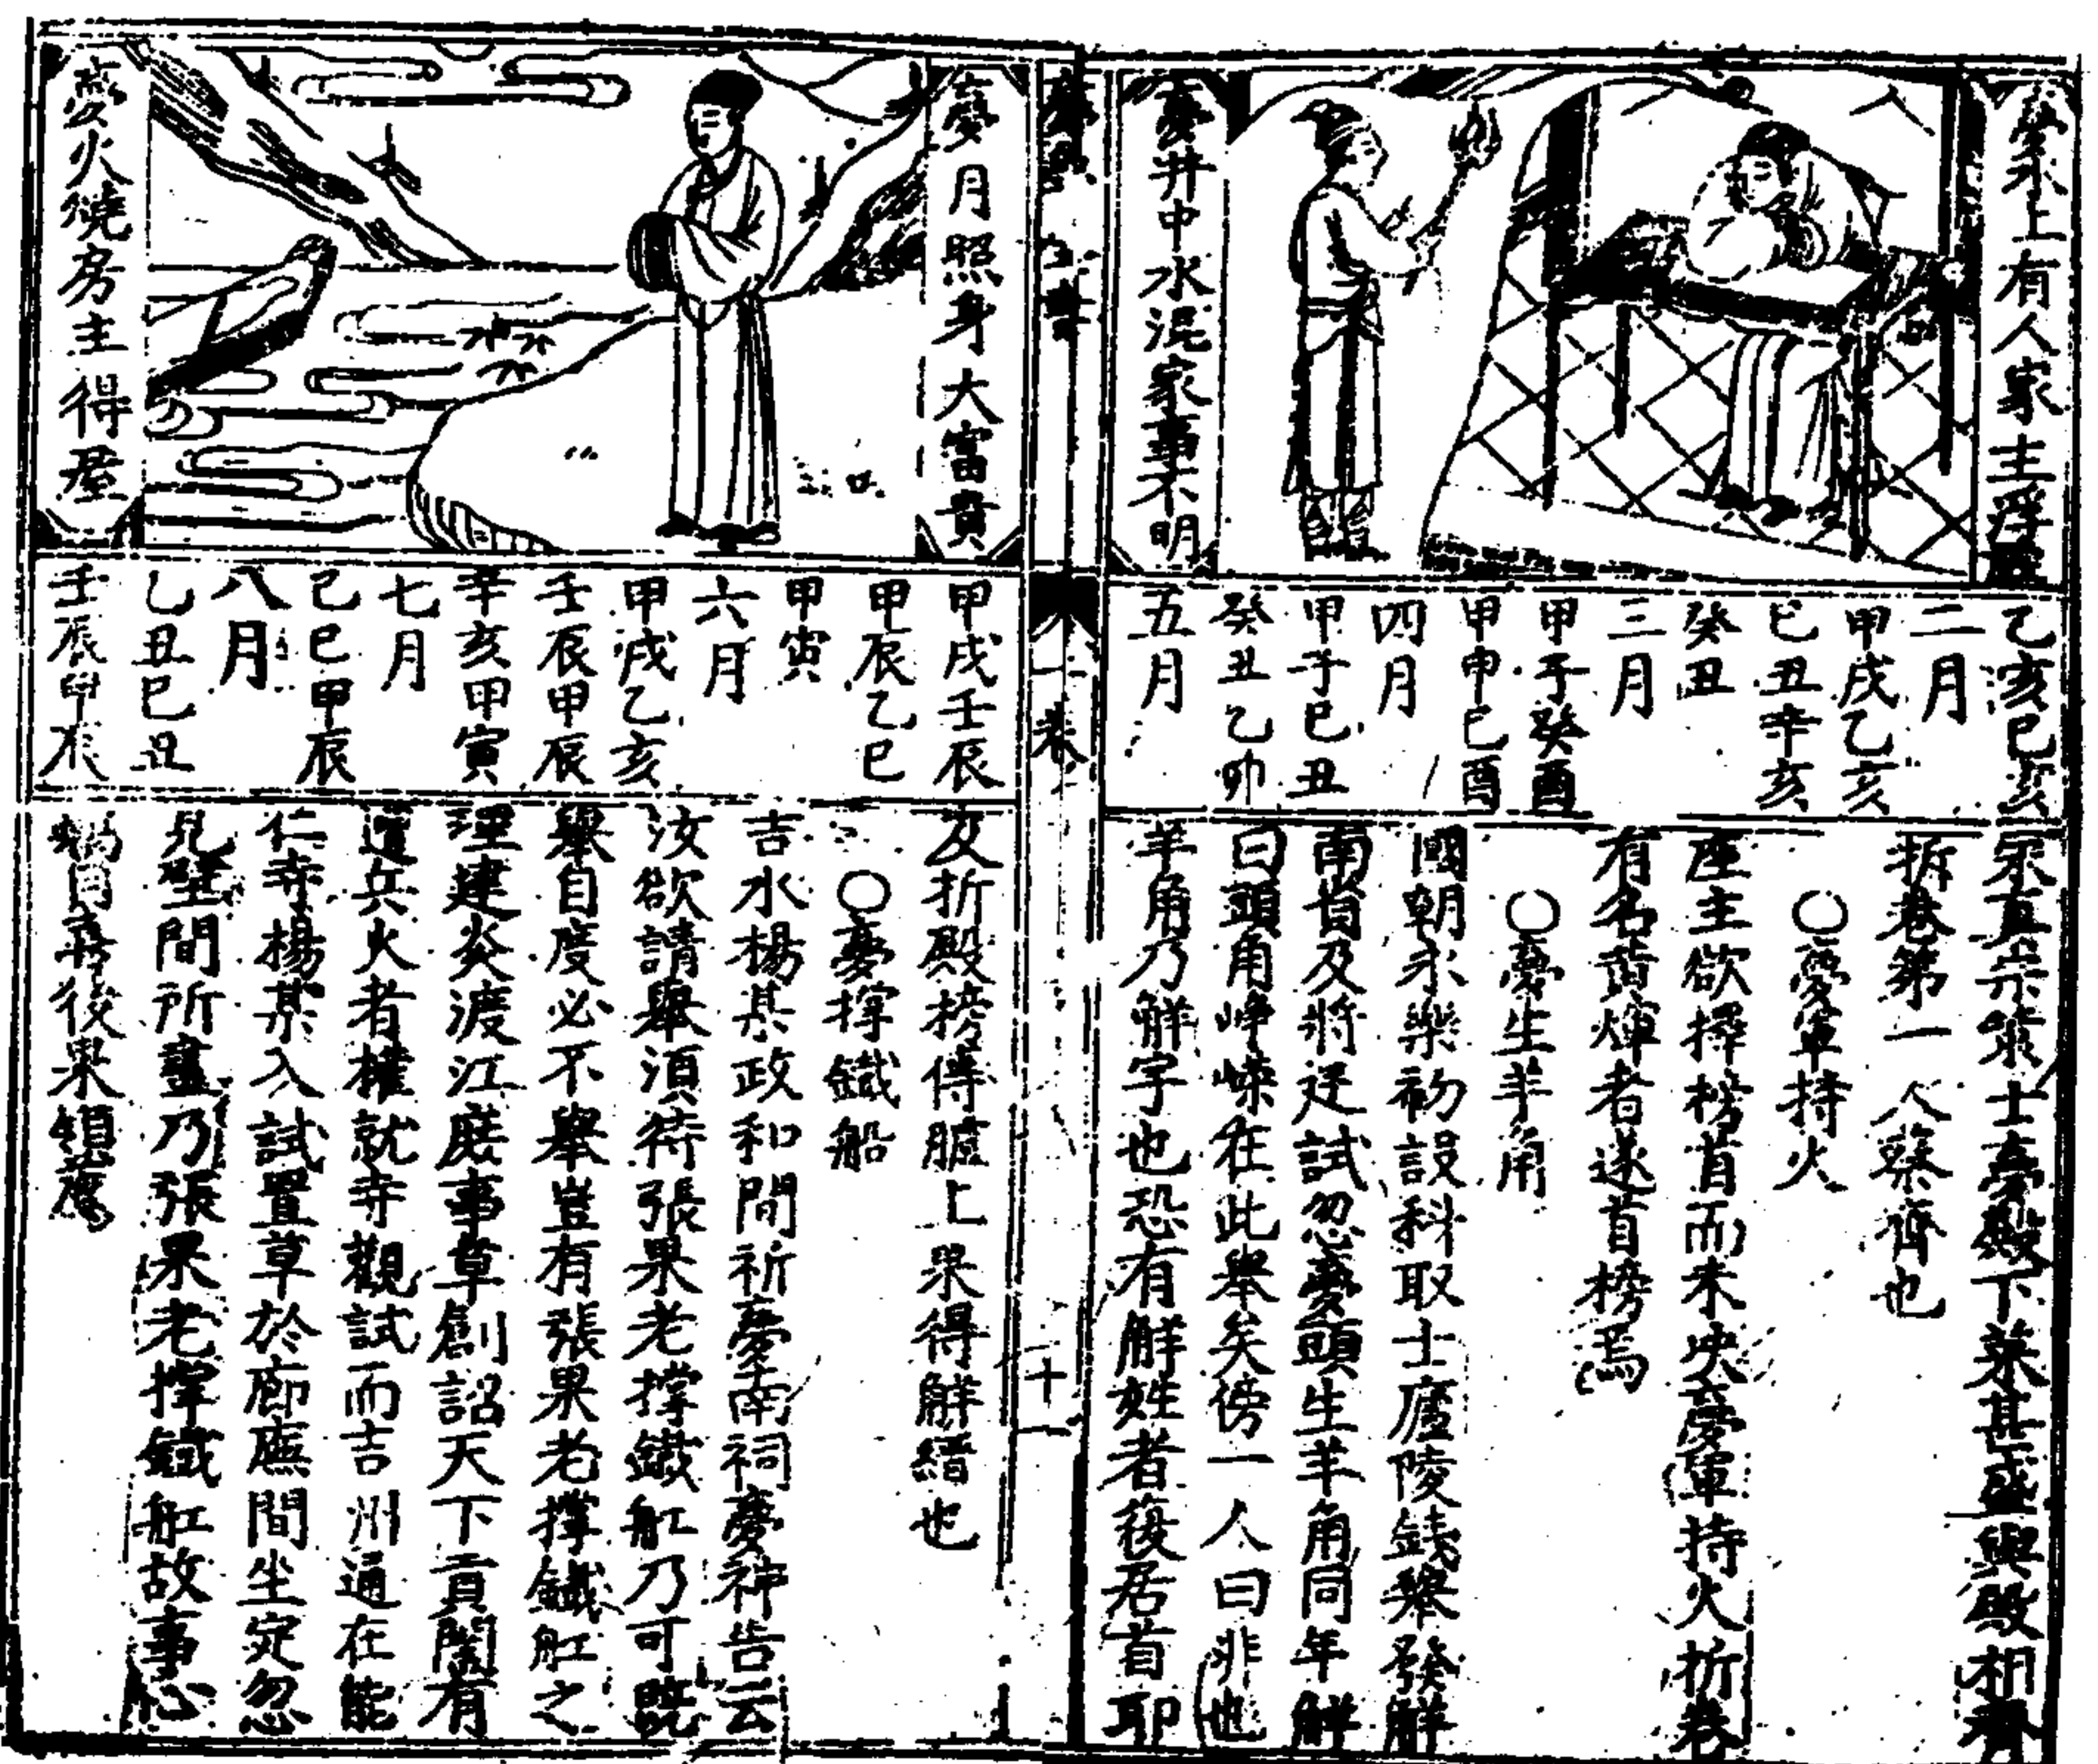 夣水上有人家主浮
夣井中水混家事不明
乙亥己亥
二月
甲戌乙亥
己丑辛亥
癸丑
三月
甲子癸酉
甲申己酉
四月
甲子己丑
癸丑乙卯
五月
宋真宗策士夣殿下菜甚盛與殿相齊
拆卷第一人蔡齊也
○夣軍持火
座主欲擇榜首而未決夣軍持火折卷
有名黃煇者遂首榜焉
○夣生羊角
國朝永樂初設科取士廬陵錢舉發解
南省及將廷試忽夣頭生羊角同年解
曰頭角崢嶸在此舉矣傍一人曰非也
羊角乃觧字也恐有觧姓者復居首耶
卷
十一
夣月照身大富貴
夣火燒房主得
甲戌壬辰
甲辰乙巳
甲寅
六月
甲戌乙亥
壬辰甲辰
辛亥甲寅
七月
己巳甲辰
八月
乙丑己丑
壬辰甲辰
及折殿榜傳臚上果得觧縉也
○夣撑鐵船
吉水楊某政和間祈夣南祠夣神告云
汝欲請舉須待張果老撑鐵舡乃可既
舉自度必不舉豈有張果老撑鐵舡之
理建炎渡江庶事草創詔天下貢闈有
遭兵火者權就寺觀試而吉州通在能
仁寺楊某入試置草於廊廡間坐定忽
見壁間所畫乃張果老撑鐵舡故事心
獨自喜後果領薦